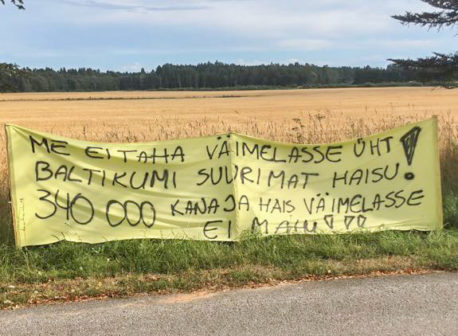 ME EI TAHA VÄIMELASSE ÜHT
BALTIKUMI SUURIMAT HAISU!
340 000 KANA JA HAIS VÄIMELASSE
EI MAHU!!!